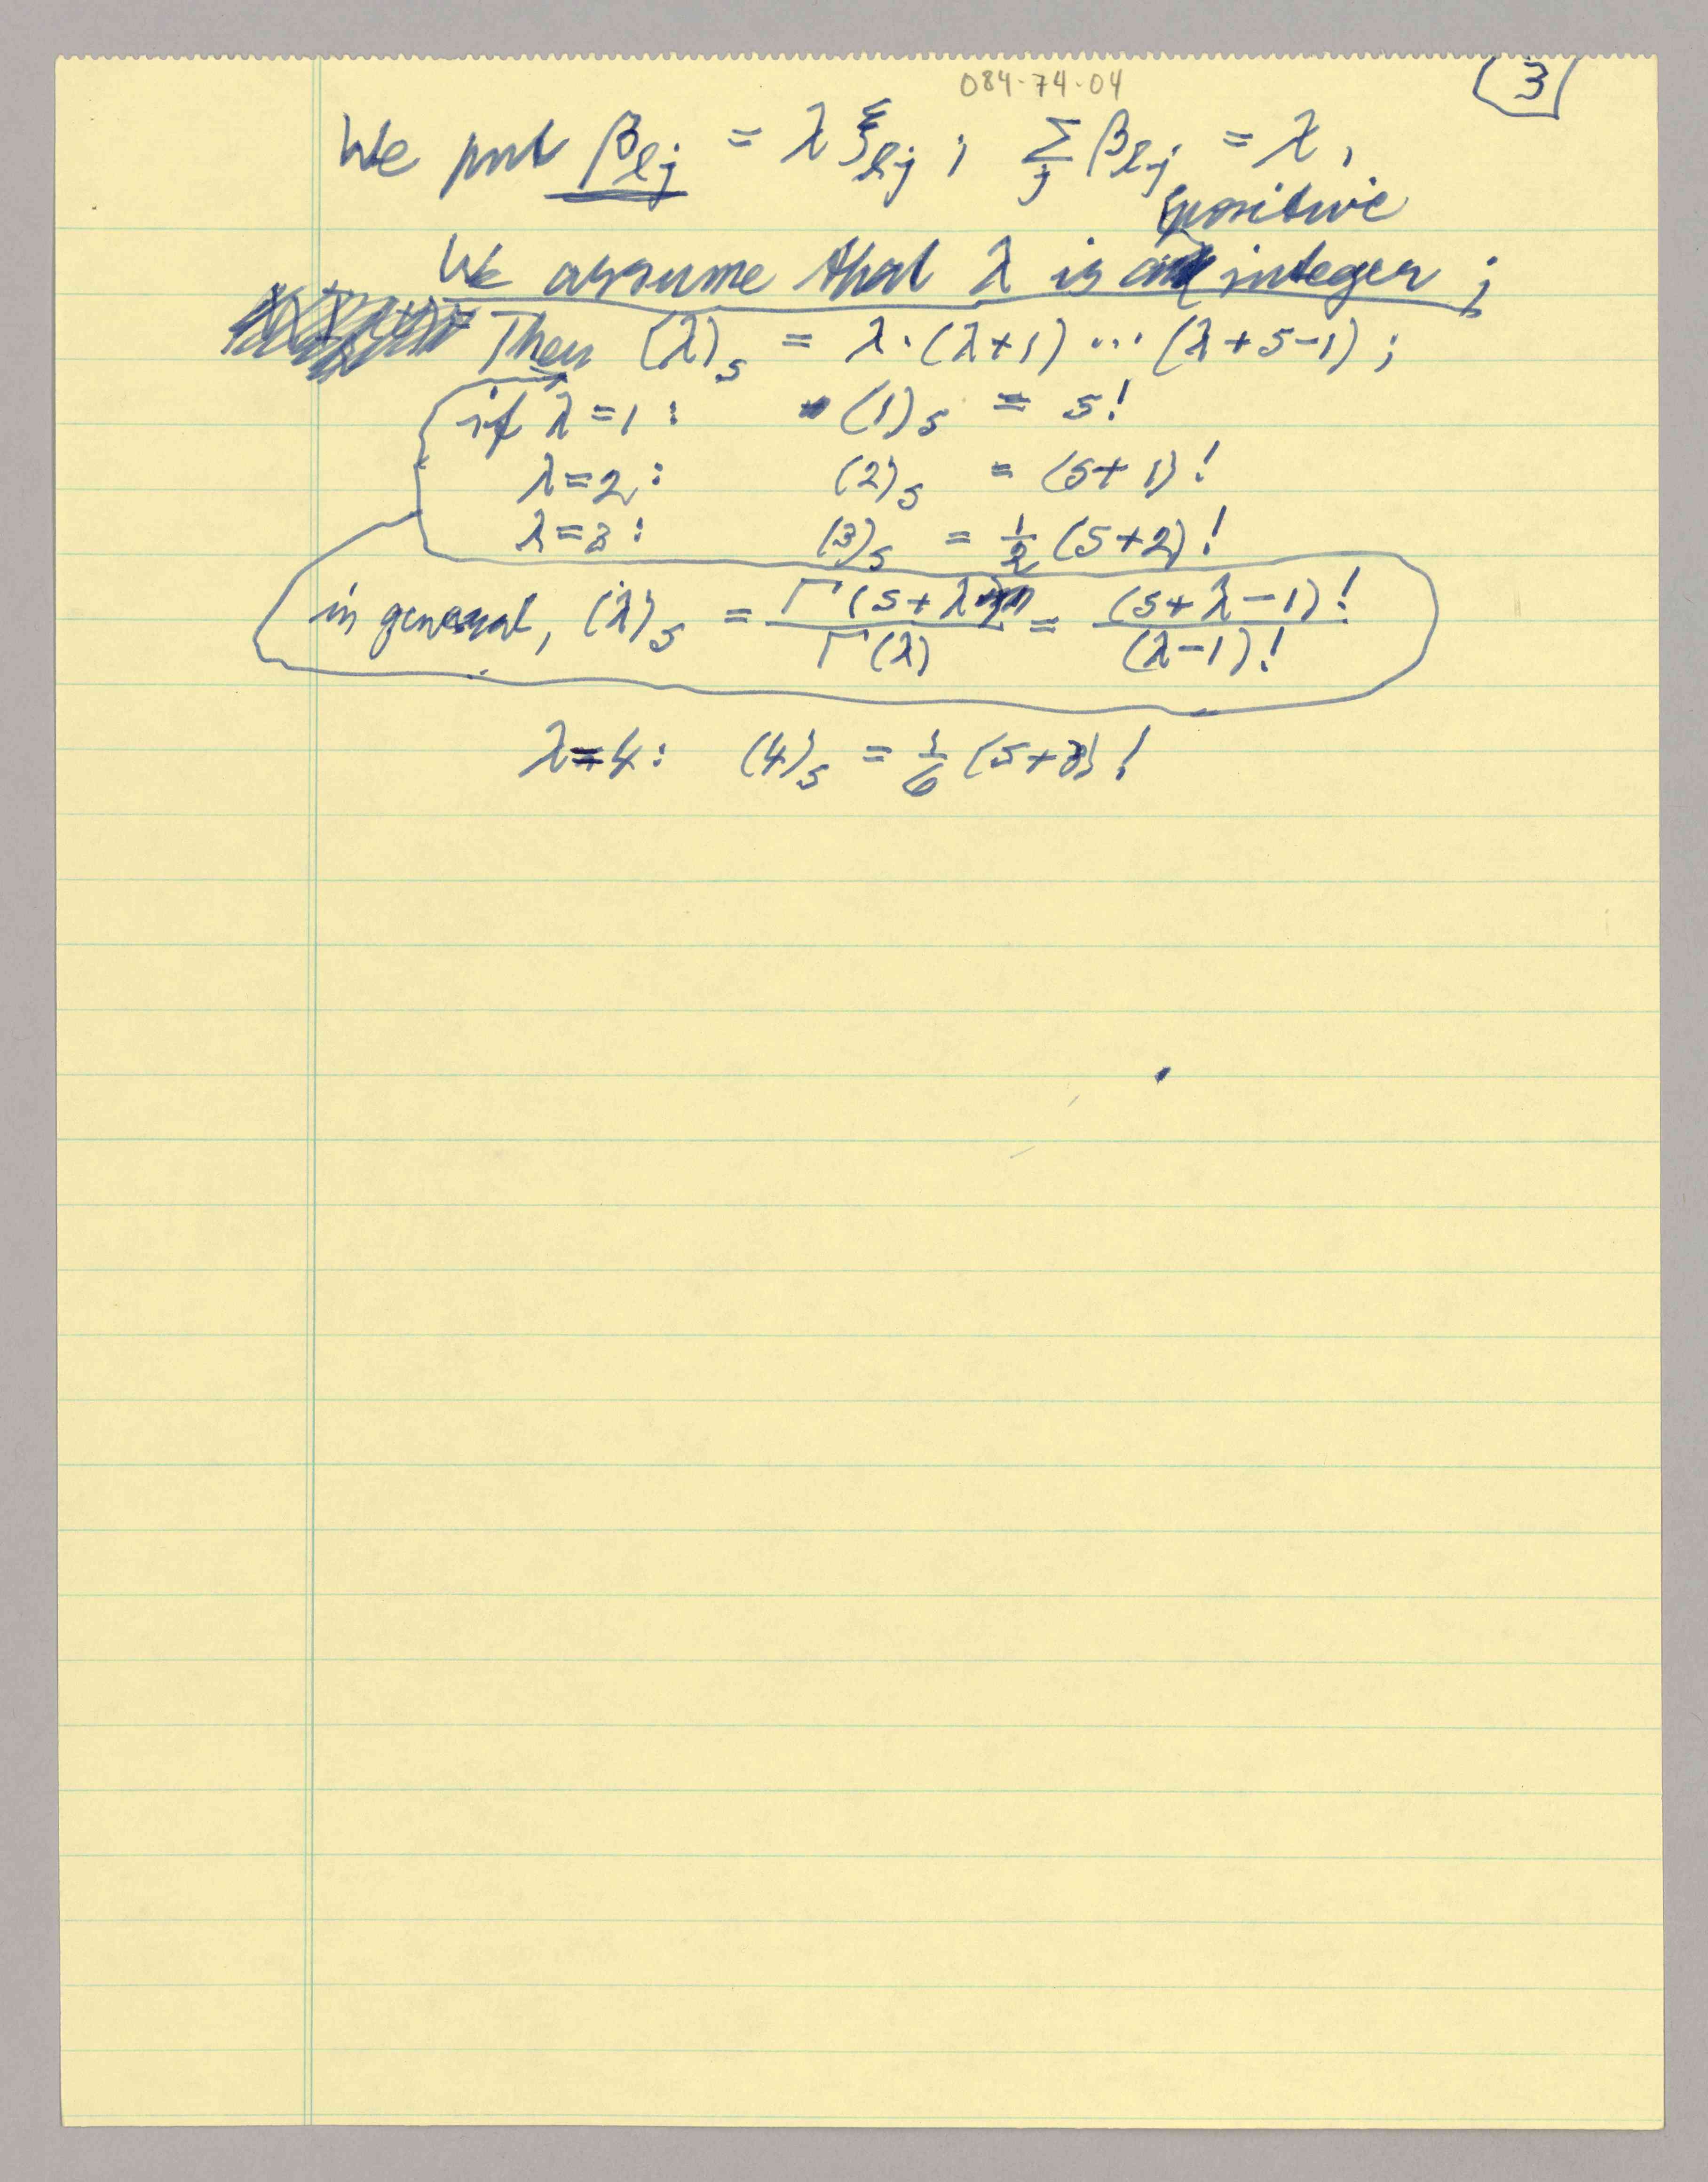 084-74-04
3
We put β_lj = λ ξ_lj ; Σ_j β_lj = λ,
positive
We assume that λ is a integer ;
Then (λ)_s = λ·(λ+1) ... (λ+s-1) ;
if λ=1: (1)_s = s!
λ=2: (2)_s = (s+1)!
λ=3: (3)_s = 1/2 (s+2)!
in general, (λ)_s = Γ(s+λ)/Γ(λ) = (s+λ-1)!/(λ-1)!
λ=4: (4)_s = 1/6 (s+3)!